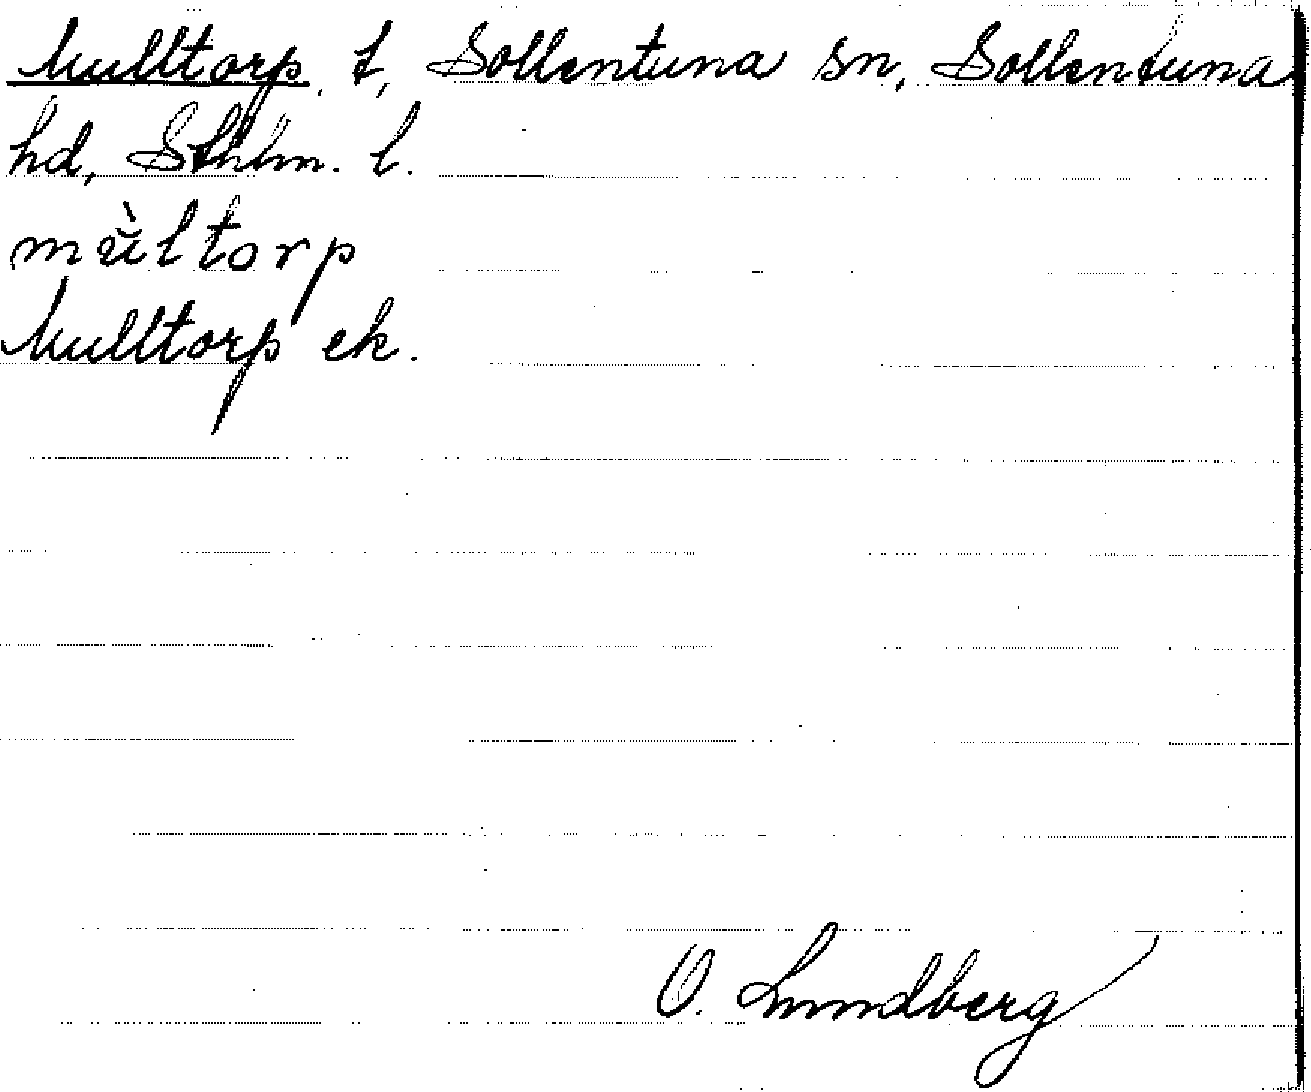 Mulltorp t, Sollentuna sn, Sollentuna
hd, Sthlm. l.
mùltorp
Mulltorp ek.
O. Lundberg